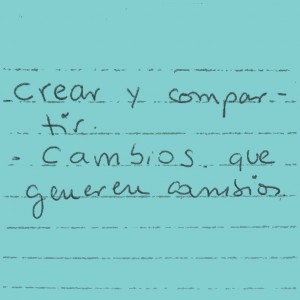 - Crear y compar-
tir.
- Cambios que
generen cambios.